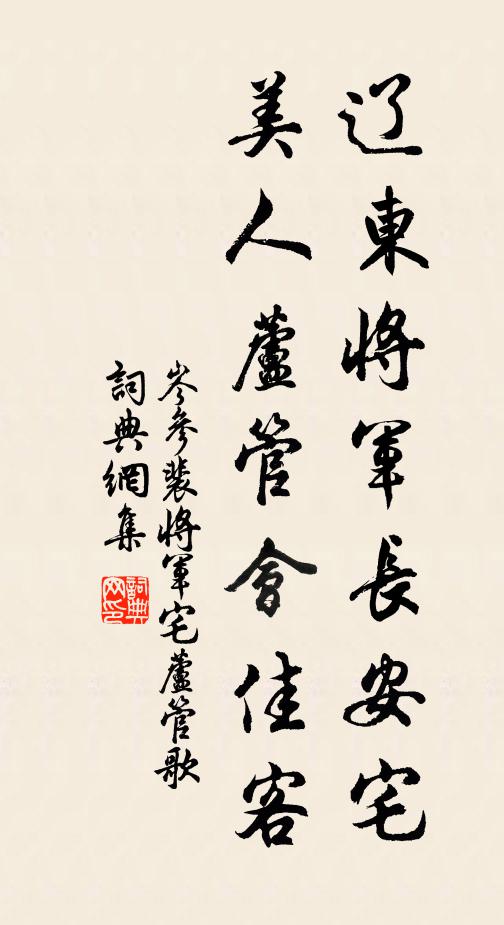 辽東將軍長安宅
美人蘆管會佳客
岑參裴將軍宅蘆管歌
詞典網集
詞典网印